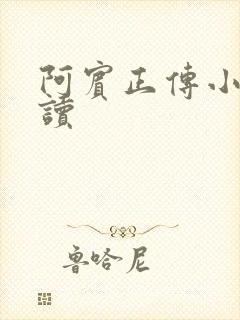 阿賓正傳小
讀
魯哈尼